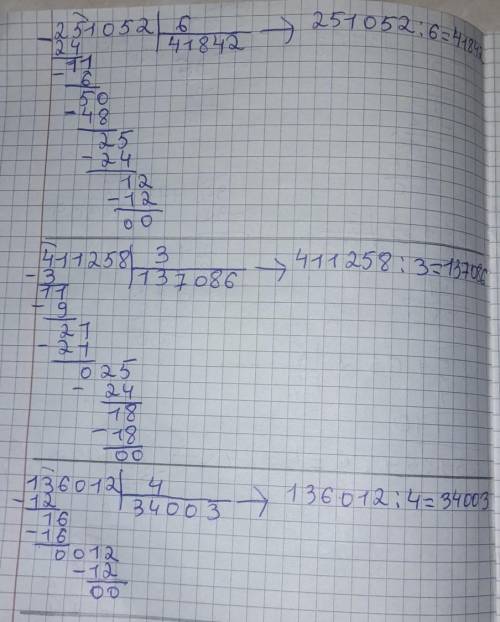 251052 | 6 → 251052:6=41842
-24 | 41842
11
-6
50
-48
25
-24
12
-12
00
411258 | 3 → 411258:3=137086
-3 | 137086
11
-9
21
-21
025
-24
18
-18
00
136012 | 4 → 136012:4=34003
-12 | 34003
16
-16
0012
-12
00